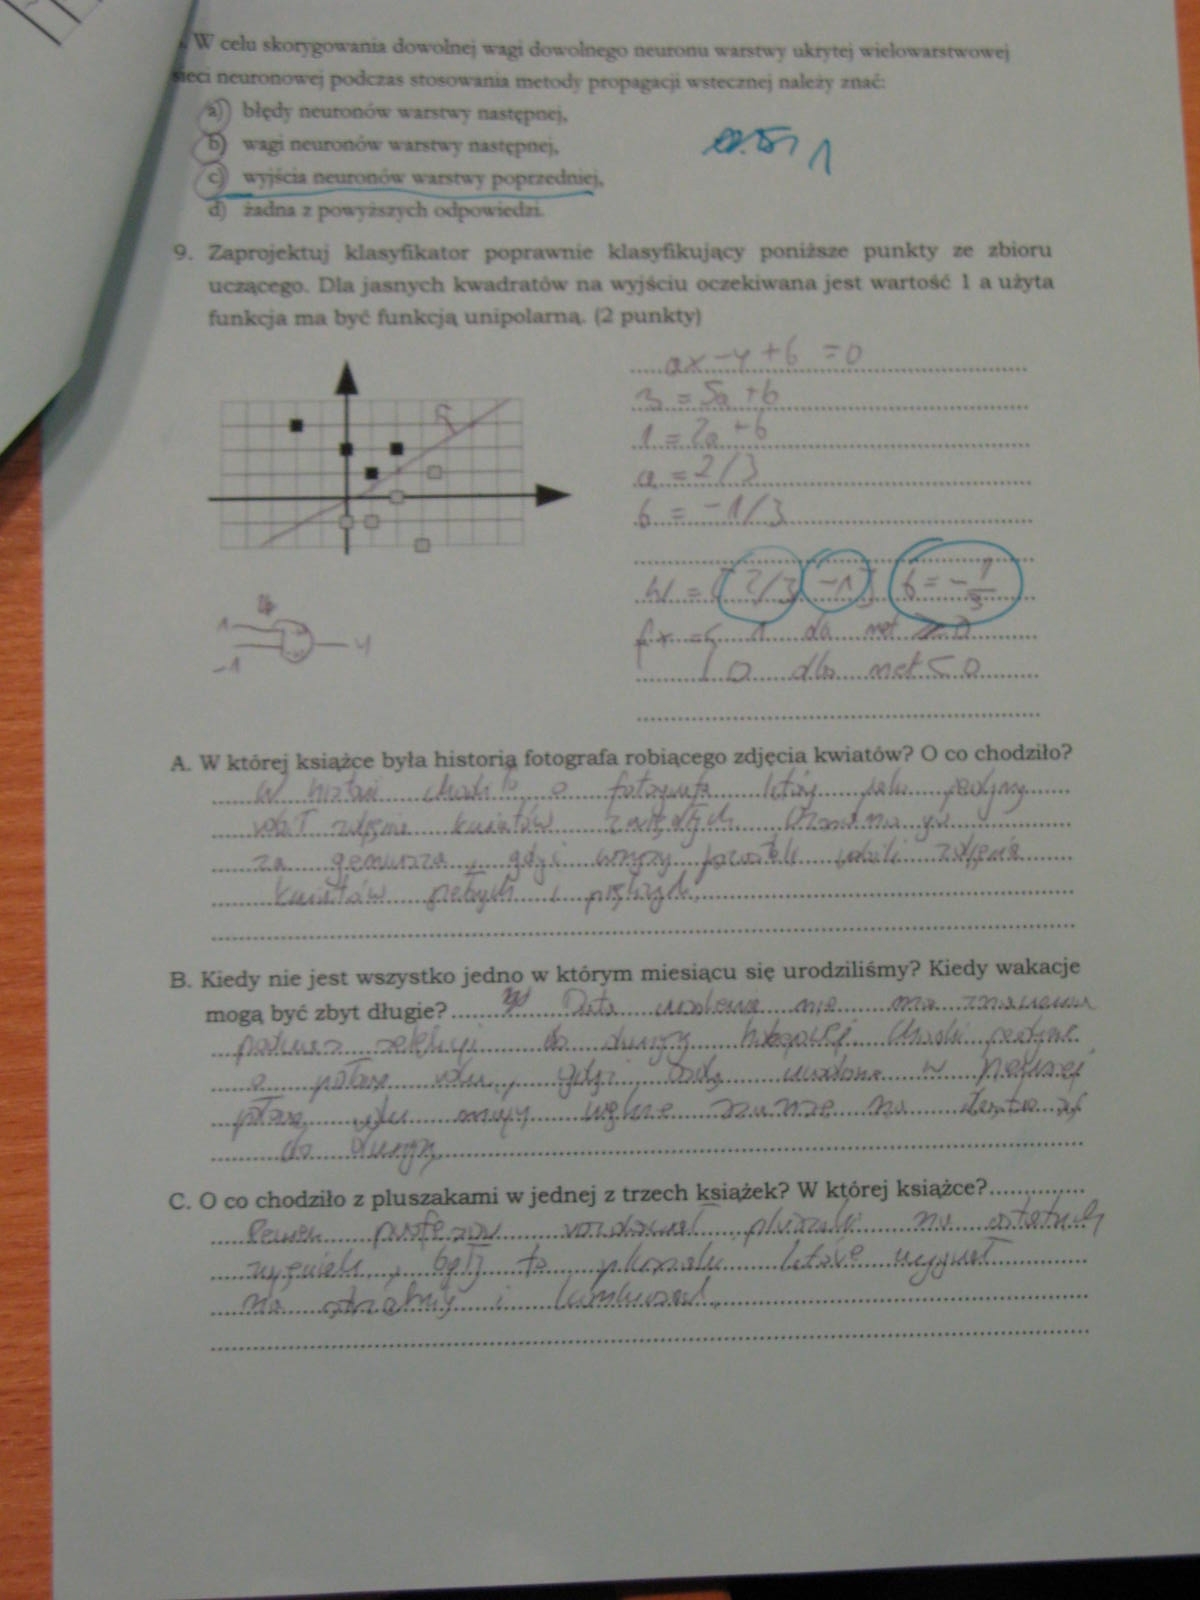 W celu skorygowania dowolnej wagi dowolnego neuronu warstwy ukrytej wielowarstwowej
sieci neuronowej podczas stosowania metody propagacji wstecznej należy znać:
a) błędy neuronów warstwy następnej,
b) wagi neuronów warstwy następnej,
c) wyjścia neuronów warstwy poprzedniej,
d) żadna z powyższych odpowiedzi.
1
9. Zaprojektuj klasyfikator poprawnie klasyfikujący poniższe punkty ze zbioru
uczącego. Dla jasnych kwadratów na wyjściu oczekiwana jest wartość 1 a użyta
funkcja ma być funkcją unipolarną. (2 punkty)
ax-y+b=0
3=5a+b
1=2a+b
a=2/3
b=-1/3
W=[2/3 -1] b=-1/3
0 dla net<0
1
-1
y
A. W której książce była historią fotografa robiącego zdjęcia kwiatów? O co chodziło?
W chodziło o fotografa który jako jedyny
robił zdjęcia kwiatów zwiędłych
za geniusza, gdyż wszyscy pozostali robili zdjęcia
kwiatów i pięknych
B. Kiedy nie jest wszystko jedno w którym miesiącu się urodziliśmy? Kiedy wakacje
mogą być zbyt długie? Data urodzenia ma ma znaczenie
podczas selekcji do drużyny hokejowej Chodzi jedynie
o połowę roku, gdyż osoby urodzone w
roku mają szanse na dostanie się
do drużyny
C. O co chodziło z pluszakami w jednej z trzech książek? W której książce?
Pewien profesor rozdawał pluszaki na ostatnich
, były to pluszaki które wygrał
na i